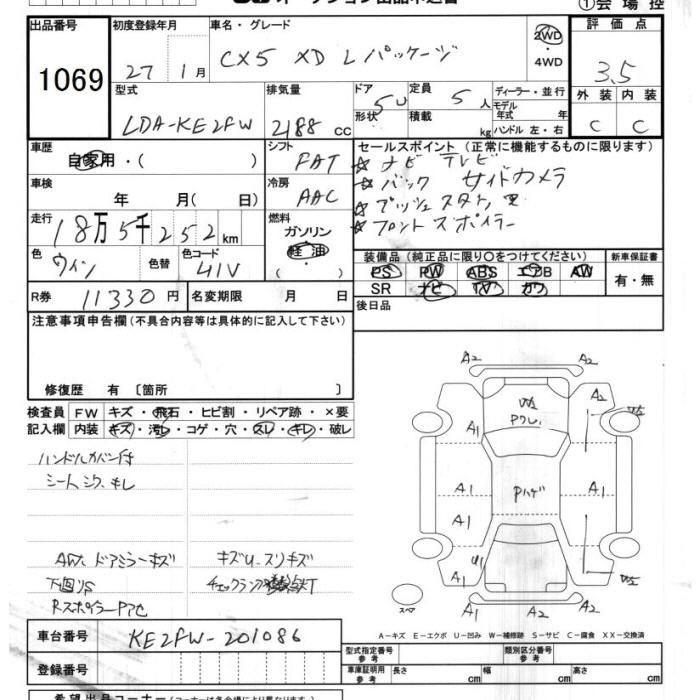 オークション出品申込書
①会場控
出品番号
1069
初度登録年月
27 1月
車名・グレード
CX5 XD Lパッケージ
2WD
・
4WD
評価点
3.5
外装 内装
C C
型式
LDA-KE2FW
排気量
2188 cc
ドア
形状
5
定員
5人
積載
kg
ディーラー・並行
モデル
年式 年
ハンドル 左・右
車歴
自家用・( )
シフト
FAT
セールスポイント(正常に機能するものに限ります)
☆ ナビ テレビ
☆ バック サイドカメラ
☆ プッシュスタート
☆ フロントスポイラー
車検
年 月( 日)
冷房
AAC
走行
18万5千252km
燃料
ガソリン
軽油
( )
色
ワイン
色替
色コード
41V
装備品(純正品に限り〇をつけてください)
PS PW ABS エアB AW
SR ナビ TV カワ
新車保証書
有・無
R券 11330円
名変期限 月 日
後日品
注意事項申告欄(不具合内容等は具体的に記入して下さい)
修復歴 有〔箇所 〕
検査員
記入欄
FW キズ・飛石・ヒビ割・リペア跡・×要
内装 キズ・汚レ・コゲ・穴・スレ・キレ・破レ
ハンドルカバー付
シートシワ、キレ
AW、ドアミラーキズ
キズU、スリキズ
下回りS
チェックランプ
RスポイラーPアセ
A2 A2
A2 A2
A1 A1
Pワレ
A1 Pハゲ A1 A1
A1
A1 A1
A2 A2
スペア
A－キズ E－エクボ U－凹み W－補修跡 S－サビ C－腐食 XX－交換済
車台番号
KE2FW-201086
登録番号
型式指定番号
参考
類別区分番号
参考
車庫証明用
参考
長さ cm 幅 cm 高さ cm
希望出品コーナー